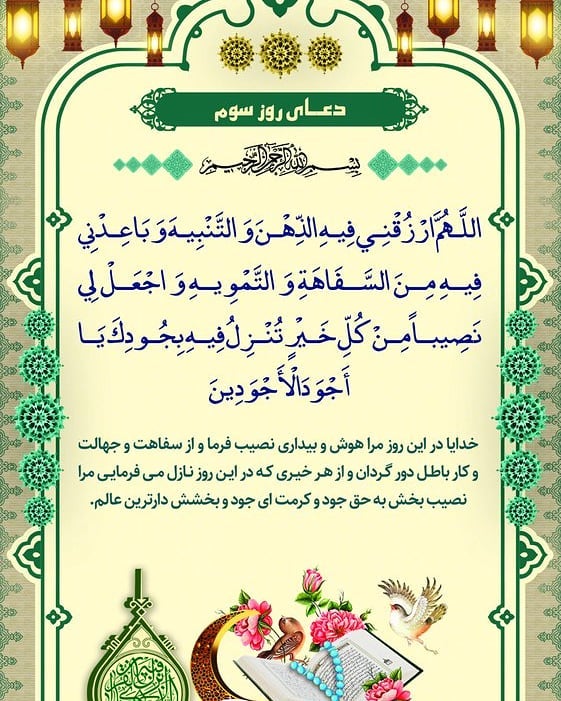 دعای روز سوم
بِسْمِ اللهِ الرَّحْمنِ الرَّحيمِ
اللَّهُمَّ ارْزُقْنِي فِيهِ الذِّهْنَ وَ التَّنْبِيهَ وَ بَاعِدْنِي
فِيهِ مِنَ السَّفَاهَةِ وَ التَّمْوِيهِ وَ اجْعَلْ لِي
نَصِيباً مِنْ كُلِّ خَيْرٍ تُنْزِلُ فِيهِ بِجُودِكَ يَا
أَجْوَدَ الْأَجْوَدِينَ
خدایا در این روز مرا هوش و بیداری نصیب فرما و از سفاهت و جهالت
و کار باطل دور گردان و از هر خیری که در این روز نازل می فرمایی مرا
نصیب بخش به حق جود و کرمت ای جود و بخشش دارترین عالم.